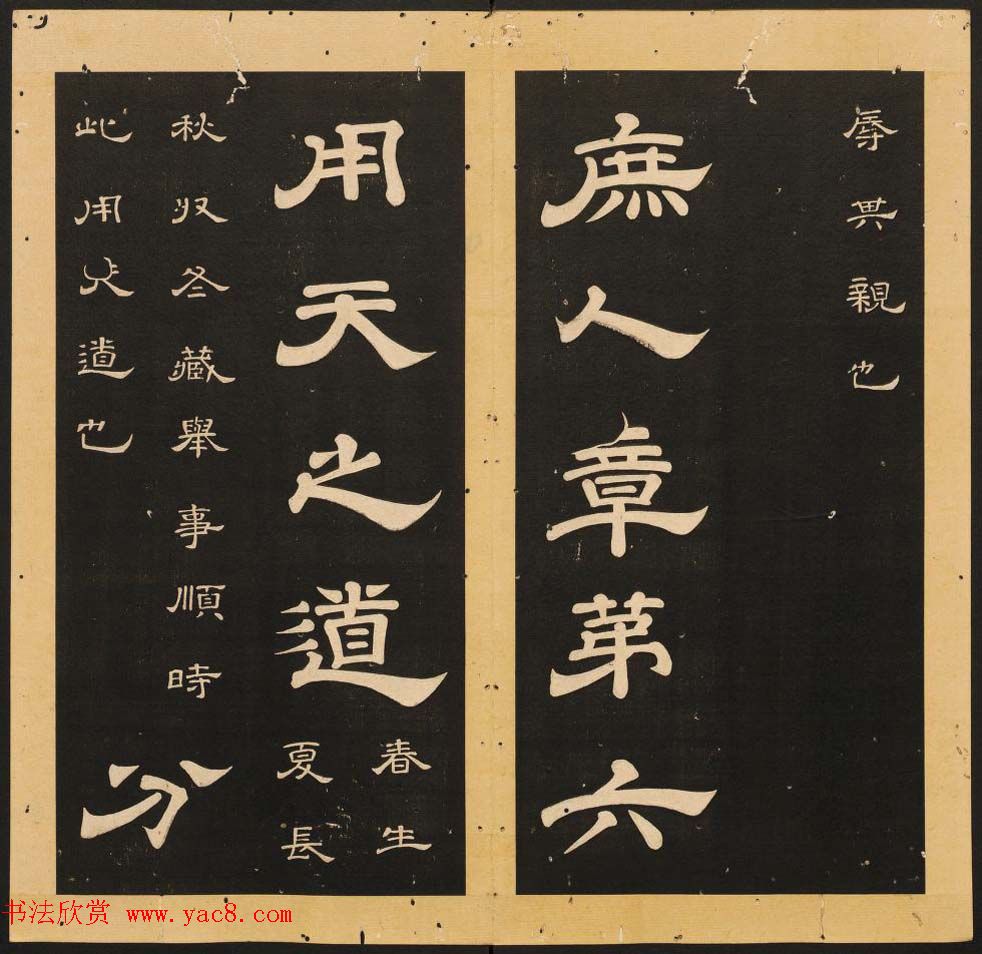 辱其親也
庶人章第六
用天之道
春生
夏長
秋收冬藏舉事順時
此用天道也
分
书法欣赏 www.yac8.com